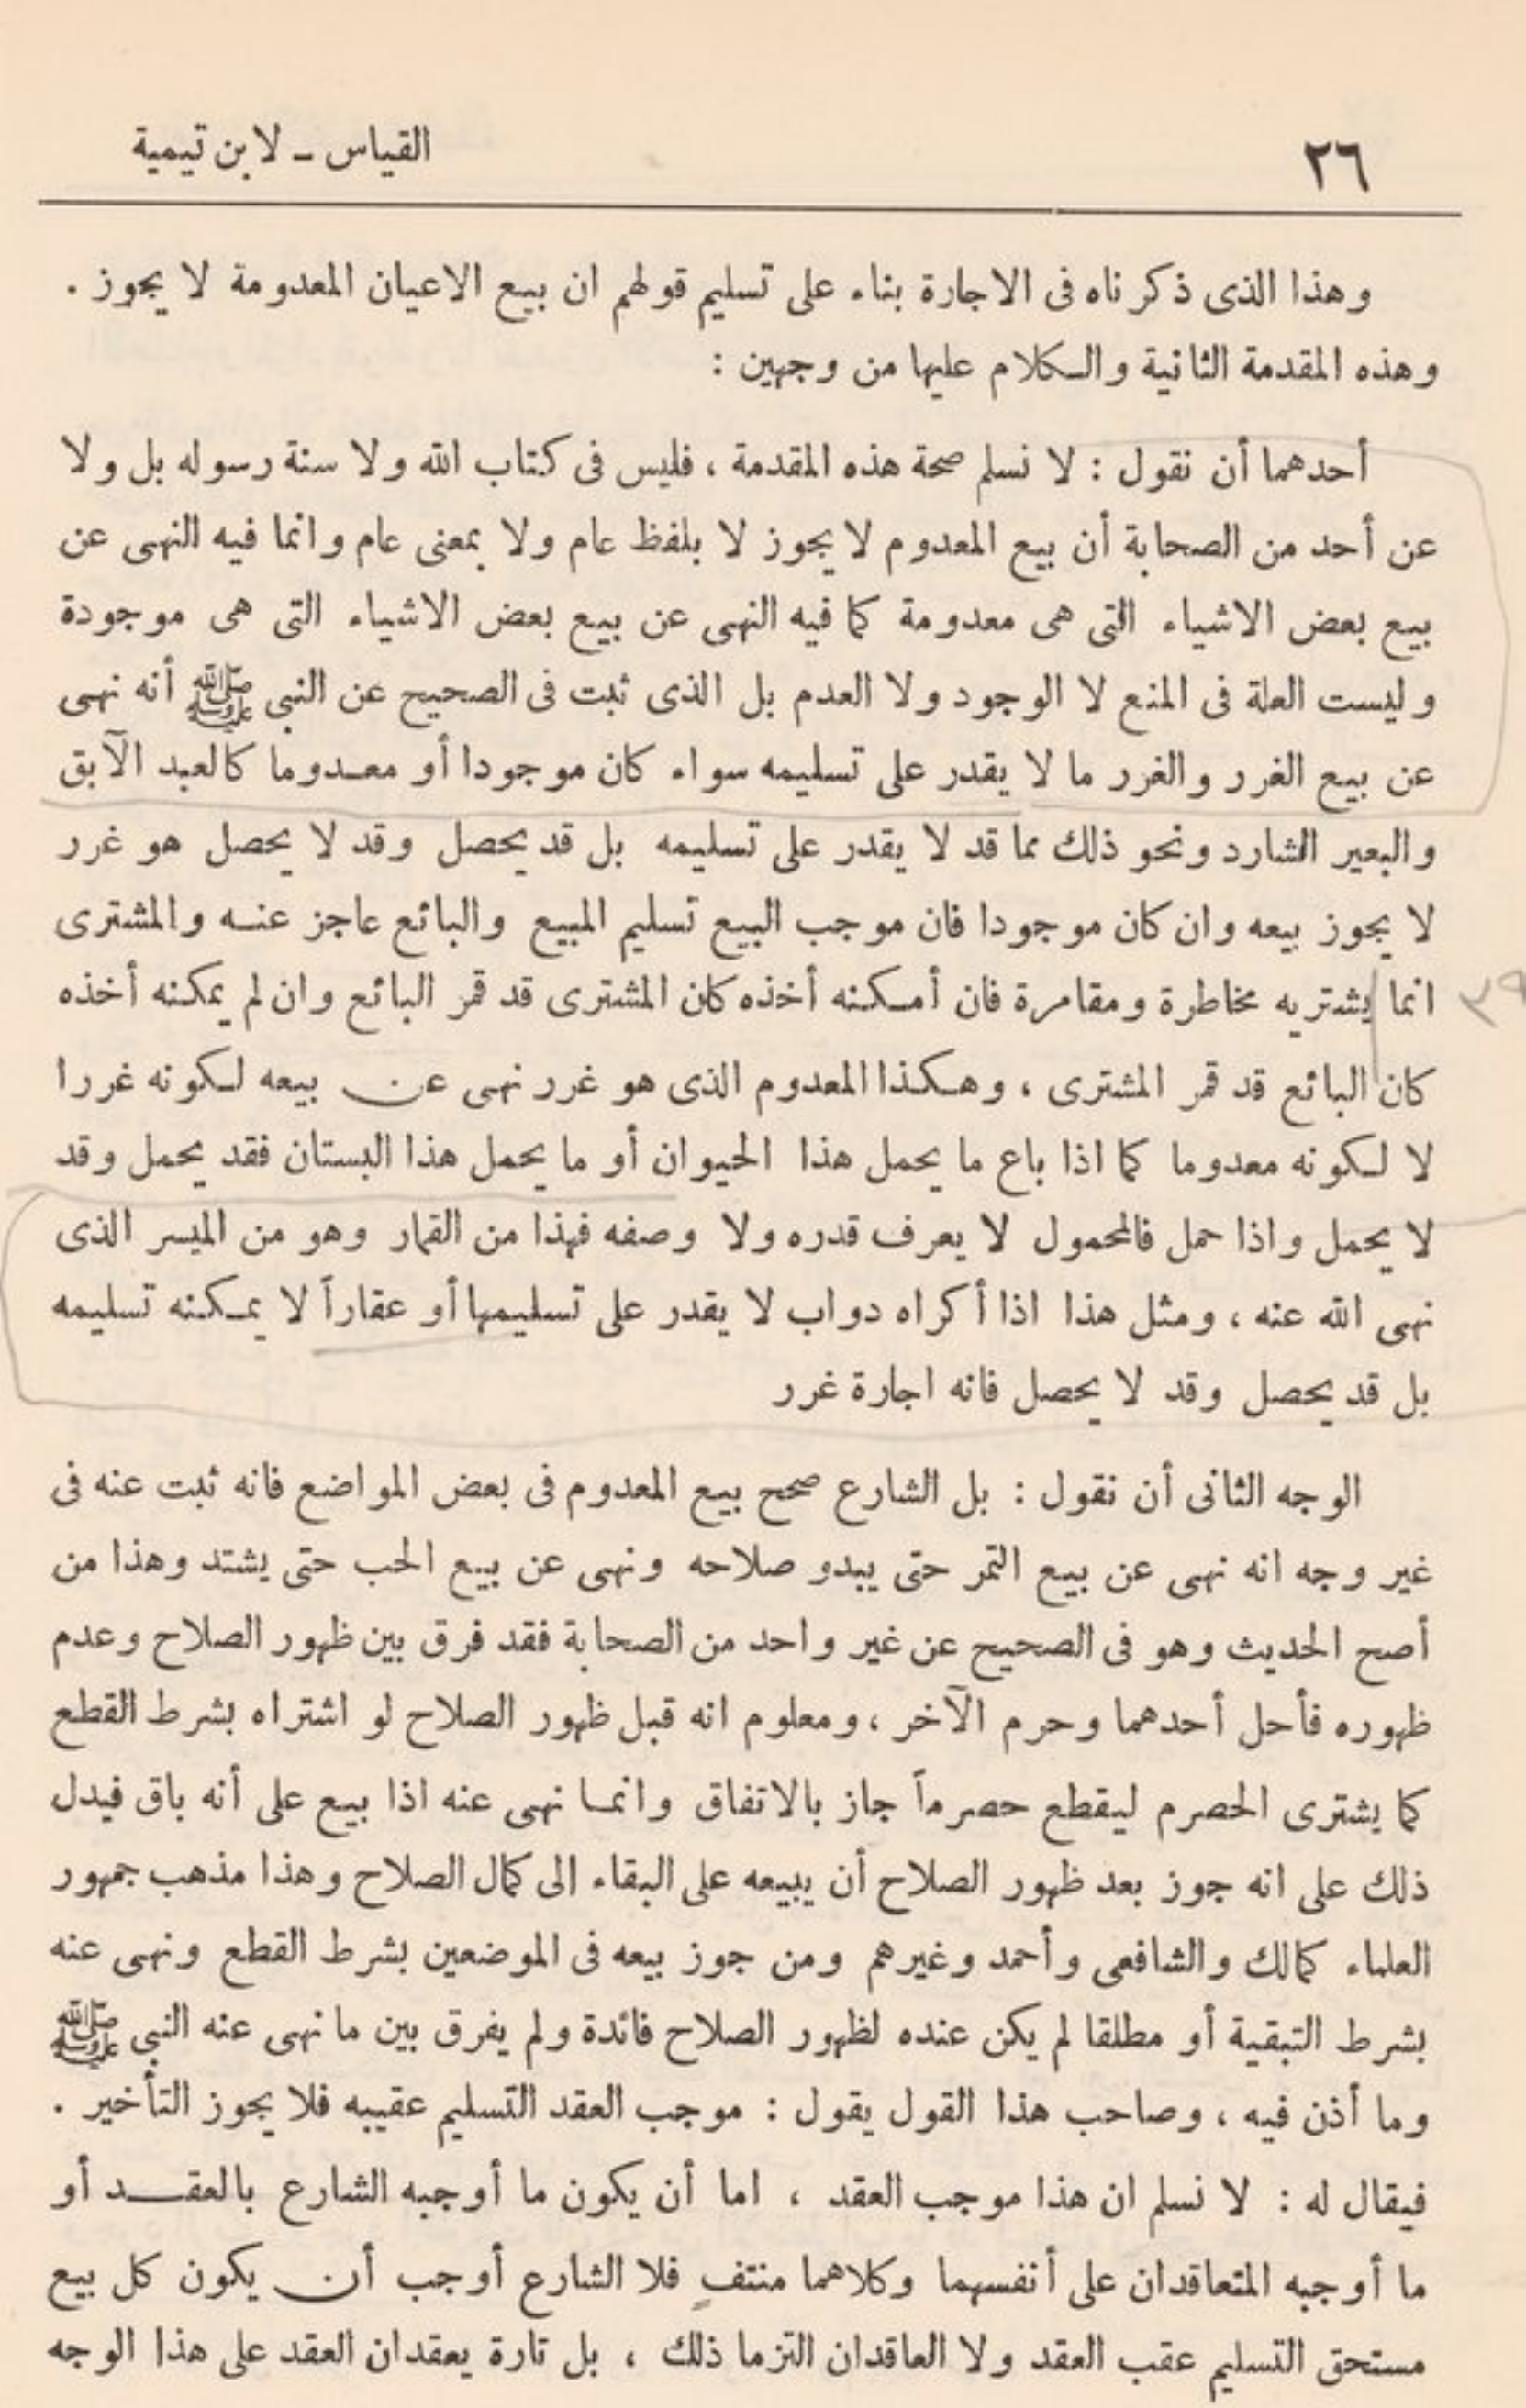 ٢٦
القياس ـ لابن تيمية
وهذا الذى ذكرناه فى الاجارة بناء على تسليم قولهم ان بيع الاعيان المعدومة لا يجوز .
وهذه المقدمة الثانية والكلام عليها من وجهين :
أحدهما أن نقول : لا نسلم صحة هذه المقدمة ، فليس فى كتاب الله ولا سنة رسوله بل ولا
عن أحد من الصحابة أن بيع المعدوم لا يجوز لا بلفظ عام ولا بمعنى عام وانما فيه النهى عن
بيع بعض الاشياء التى هى معدومة كما فيه النهى عن بيع بعض الاشياء التى هى موجودة
وليست العلة فى المنع لا الوجود ولا العدم بل الذى ثبت فى الصحيح عن النبى ﷺ أنه نهى
عن بيع الغرر والغرر ما لا يقدر على تسليمه سواء كان موجودا أو معدوما كالعبد الآبق
والبعير الشارد ونحو ذلك مما قد لا يقدر على تسليمه بل قد يحصل وقد لا يحصل هو غرر
لا يجوز بيعه وان كان موجودا فان موجب البيع تسليم المبيع والبائع عاجز عنه والمشترى
انما يشتريه مخاطرة ومقامرة فان أمكنه أخذه كان المشترى قد قمر البائع وان لم يمكنه أخذه
٣٩
كان البائع قد قمر المشترى ، وهكذا المعدوم الذى هو غرر نهى عن بيعه لكونه غررا
لا لكونه معدوما كما اذا باع ما يحمل هذا الحيوان أو ما يحمل هذا البستان فقد يحمل وقد
لا يحمل واذا حمل فالمحمول لا يعرف قدره ولا وصفه فهذا من القمار وهو من الميسر الذى
نهى الله عنه ، ومثل هذا اذا أكراه دواب لا يقدر على تسليمها أو عقاراً لا يمكنه تسليمه
بل قد يحصل وقد لا يحصل فانه اجارة غرر
الوجه الثانى أن نقول : بل الشارع صحح بيع المعدوم فى بعض المواضع فانه ثبت عنه فى
غير وجه انه نهى عن بيع التمر حتى يبدو صلاحه ونهى عن بيع الحب حتى يشتد وهذا من
أصح الحديث وهو فى الصحيح عن غير واحد من الصحابة فقد فرق بين ظهور الصلاح وعدم
ظهوره فأحل أحدهما وحرم الآخر ، ومعلوم انه قبل ظهور الصلاح لو اشتراه بشرط القطع
كما يشترى الحصرم ليقطع حصرماً جاز بالاتفاق وانما نهى عنه اذا بيع على أنه باق فيدل
ذلك على انه جوز بعد ظهور الصلاح أن يبيعه على البقاء الى كمال الصلاح وهذا مذهب جمهور
العلماء كمالك والشافعى وأحمد وغيرهم ومن جوز بيعه فى الموضعين بشرط القطع ونهى عنه
بشرط التبقية أو مطلقا لم يكن عنده لظهور الصلاح فائدة ولم يفرق بين ما نهى عنه النبى ﷺ
وما أذن فيه ، وصاحب هذا القول يقول : موجب العقد التسليم عقيبه فلا يجوز التأخير .
فيقال له : لا نسلم ان هذا موجب العقد ، اما أن يكون ما أوجبه الشارع بالعقد أو
ما أوجبه المتعاقدان على أنفسهما وكلاهما منتفٍ فلا الشارع أوجب أن يكون كل بيع
مستحق التسليم عقب العقد ولا العاقدان التزما ذلك ، بل تارة يعقدان العقد على هذا الوجه